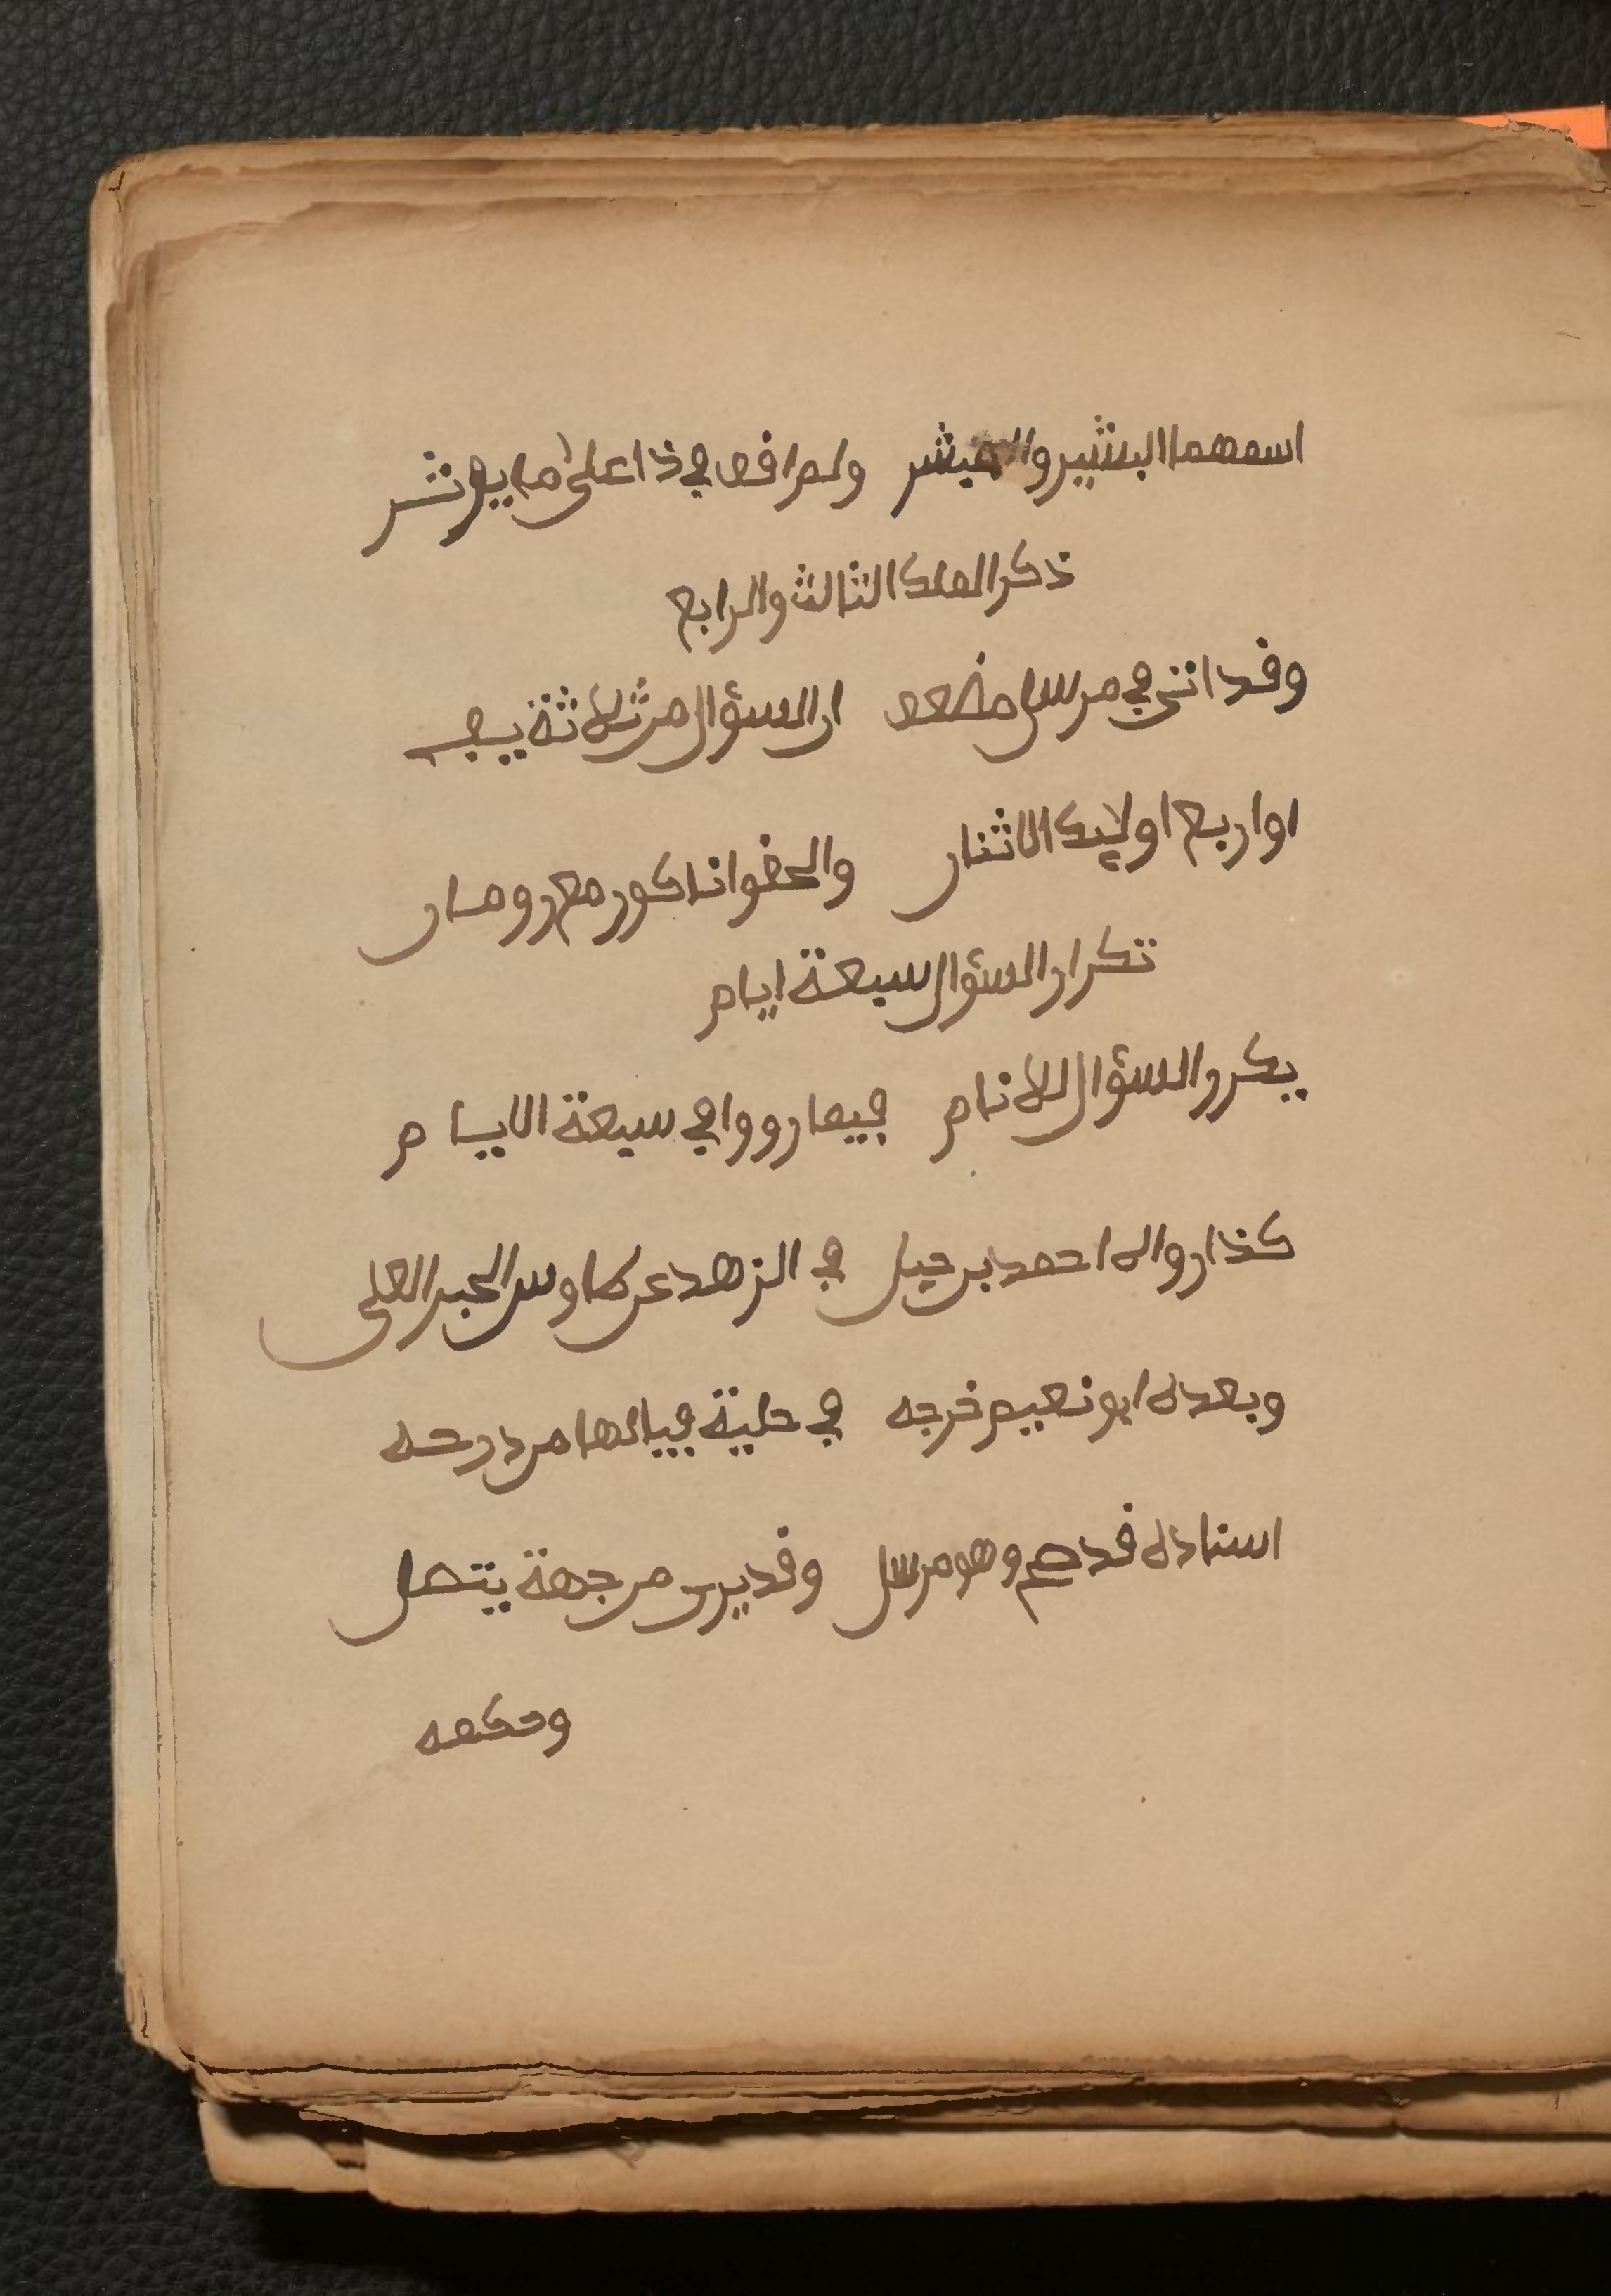 اسمهما البشير والمبشر ولم اقف في ذا على ما يوثر
ذكر الملك الثالث والرابع
وقد اتى في مرسل مضعف ان السؤال من ثلاثة يفي
او اربع اوليك الاثنان والحقوا ناكور مع رومان
تكرار السؤال سبعة ايام
يكرر السؤال للانام فيما رووا في سبعة الايام
كذا رواه احمد بن حنبل في الزهد عن طاوس الحبر العلي
وبعده ابو نعيم خرجه في حلية فيالها من درجه
اسناده قد صح وهو مرسل وقد يرى من جهة يتصل
وحكمه